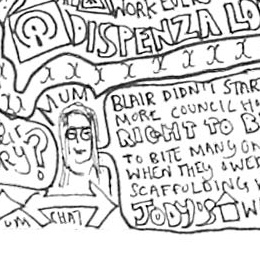 WORK EVE
DISPENZA LO
X X X X X X X
MUM
BLAIR DIDN'T STAR
MORE COUNCIL H
RIGHT TO B
TO BITE MANY ON
WHEN THEY WE
SCAFFOLDING
JODY'S W
RY?
UM
CHAT